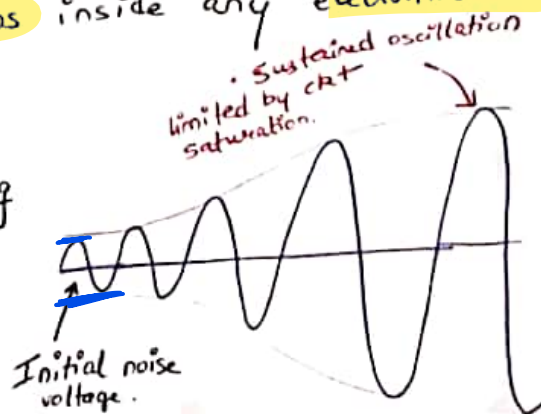 os inside any
• Sustained oscillation
limited by ckt
saturation.
Initial noise
voltage.